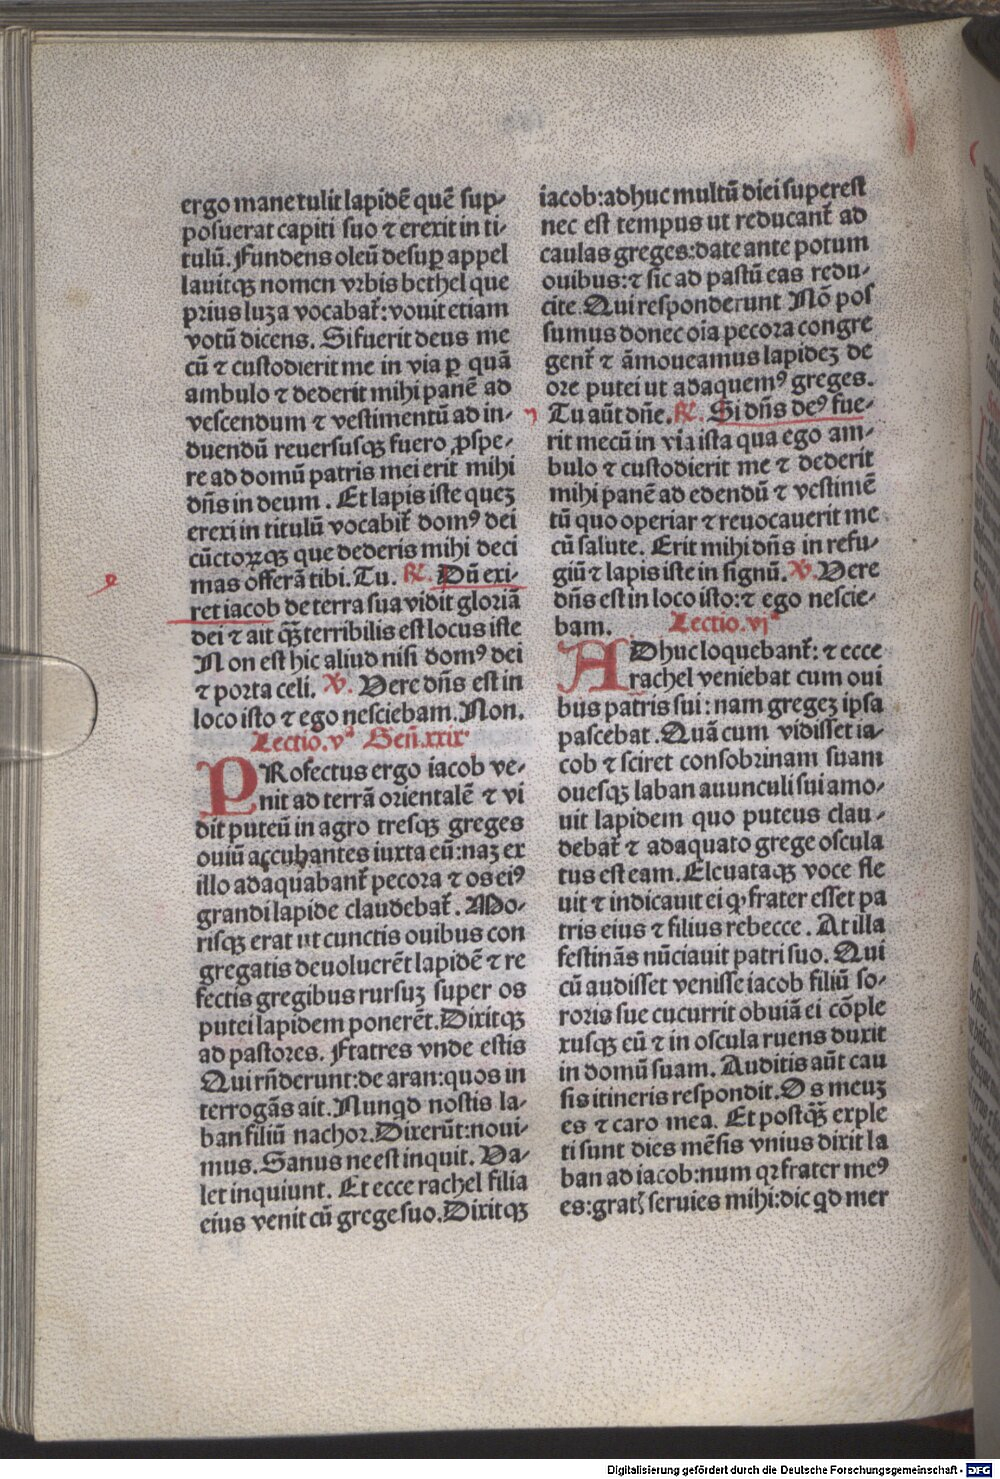 ergo mane tulit lapidē quē sup-
posuerat capiti suo ⁊ erexit in ti-
tulū. Fundens oleū desuꝑ appel
lauitqꝫ nomen vrbis bethel que
prius luza vocabat᷑: vouit etiam
votū dicens. Si fuerit deus me
cū ⁊ custodierit me in via ꝑ quā
ambulo ⁊ dederit mihi panē ad
vescendum ⁊ vestimentū ad in-
duendū reuersusqꝫ fuero ꝓspe-
re ad domū patris mei erit mihi
dn̄s in deum. Et lapis iste queꝫ
erexi in titulū vocabit᷑ domꝰ dei
cūctoꝝqꝫ que dederis mihi deci
mas offerā tibi. Tu. ℟. Dū exi-
ret iacob de terra sua vidit gloriā
dei ⁊ ait qꝫ̄ terribilis est locus iste
Non est hic aliud nisi domꝰ dei
⁊ porta celi. ℣. Vere dn̄s est in
loco isto ⁊ ego nesciebam. Non.
Lectio. vᵃ Gen̄. xxix
PRofectus ergo iacob ve-
nit ad terrā orientalē ⁊ vi
dit puteū in agro tresqꝫ greges
ouiū accubantes iuxta eū: naꝫ ex
illo adaquabant᷑ pecora ⁊ os eiꝰ
grandi lapide claudebat᷑. Mo-
risqꝫ erat ut cunctis ouibus con
gregatis deuoluerēt lapidē ⁊ re
fectis gregibus rursuꝫ super os
putei lapidem ponerēt. Dixitqꝫ
ad pastores. Ftatres vnde estis
Qui rn̄derunt: de aran: quos in
terrogās ait. Nunqd nostis la-
ban filiū nachor. Dixerūt: noui-
mus. Sanus ne est inquit. Va-
let inquiunt. Et ecce rachel filia
eius venit cū grege suo. Dixitqꝫ
iacob: adhuc multū diei superest
nec est tempus ut reducant᷑ ad
caulas greges: date ante potum
ouibus: ⁊ sic ad pastū eas redu-
cite. Qui responderunt Nō pos
sumus donec oīa pecora congre
gent᷑ ⁊ āmoueamus lapideꝫ de
ore putei ut adaquemꝰ greges.
Tu aūt dn̄e. ℟. Si dn̄s deꝰ fue-
rit mecū in via ista qua ego am-
bulo ⁊ custodierit me ⁊ dederit
mihi panē ad edendū ⁊ vestimē
tū quo operiar ⁊ reuocauerit me
cū salute. Erit mihi dn̄s in refu-
giū ⁊ lapis iste in signū. ℣. Vere
dn̄s est in loco isto: ⁊ ego nescie-
bam. Lectio. vjᵃ
ADhuc loquebant᷑: ⁊ ecce
rachel veniebat cum oui
bus patris sui: nam gregeꝫ ipsa
pascebat. Quā cum vidisset ia-
cob ⁊ sciret consobrinam suam
ouesqꝫ laban auunculi sui amo-
uit lapidem quo puteus clau-
debat᷑ ⁊ adaquato grege oscula
tus est eam. Eleuataqꝫ voce fle
uit ⁊ indicauit ei ꝙ frater esset pa
tris eius ⁊ filius rebecce. At illa
festinās nūciauit patri suo. Qui
cū audisset venisse iacob filiū so-
roris sue cucurrit obuiā ei cōple
xusqꝫ eū ⁊ in oscula ruens duxit
in domū suam. Auditis aūt cau
sis itineris respondit. Os meuꝫ
es ⁊ caro mea. Et postqꝫ̄ exple
ti sunt dies mēsis vnius dixit la
ban ad iacob: num qꝛ frater meꝰ
es: gratꝭ seruies mihi: dic qd mer
Digitalisierung gefördert durch die Deutsche Forschungsgemeinschaft - DFG